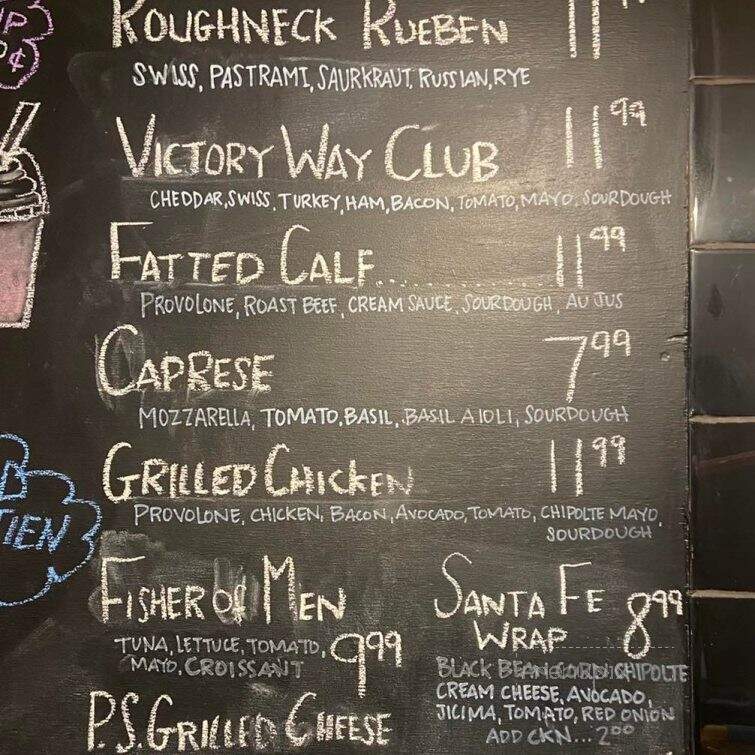 ROUGHNECK RUEBEN 11
SWISS, PASTRAMI, SAURKRAUT, RUSSIAN, RYE
VICTORY WAY CLUB 11 99
CHEDDAR, SWISS, TURKEY, HAM, BACON, TOMATO, MAYO, SOURDOUGH
FATTED CALF............ 11 99
PROVOLONE, ROAST BEEF, CREAM SAUCE, SOURDOUGH, AU JUS
CAPRESE 7 99
MOZZARELLA, TOMATO, BASIL, BASIL AIOLI, SOURDOUGH
GRILLED CHICKEN 11 99
PROVOLONE, CHICKEN, BACON, AVOCADO, TOMATO, CHIPOLTE MAYO,
SOURDOUGH
FISHER OF MEN
TUNA, LETTUCE, TOMATO,
MAYO, CROISSANT 9 99
SANTA FE
WRAP 8 99
BLACK BEAN CORN CHIPOLTE
CREAM CHEESE, AVOCADO,
JICIMA, TOMATO, RED ONION
ADD CKN... 2 00
P.S. GRILLED CHEESE